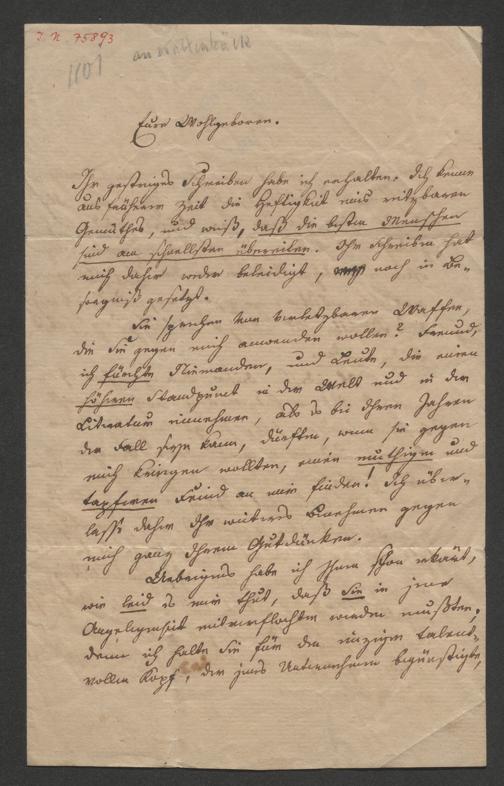 I. N. 75893
1101
Eure Wohlgeboren.
Ihr gestriges Schreiben habe ich erhalten. Ich kenne
aus früherer Zeit die Heftigkeit eines reitzbaren
Gemüthes, und weiß, daß die besten Menschen
sich am schnellsten übereilen. Ihr Schreiben hat
mich daher weder beleidigt, noch in Be-
sorgniß gesetzt.
Sie sprechen von Waffen,
die Sie gegen mich anwenden wollen? Freund,
ich fürchte Niemanden, und Leute, die einen
höheren Standpunct in der Welt und in der
Literatur einnehmen, als es bei Ihren Jahren
der Fall seyn kann, dürften, wenn sie gegen
mich kriegen wollten, einen muthigen und
tapferen Feind an mir finden! Ich über-
lasse daher Ihr weiteres Benehmen gegen
mich ganz Ihrem Gutdünken.
Uebrigens habe ich Ihnen schon erklärt,
wie leid es mir thut, daß Sie in jene
Angelegenheit mitverflochten werden mußten,
denn ich halte Sie für den einzigen talent-
vollen Kopf, der jenes Unternehmen begünstigte,